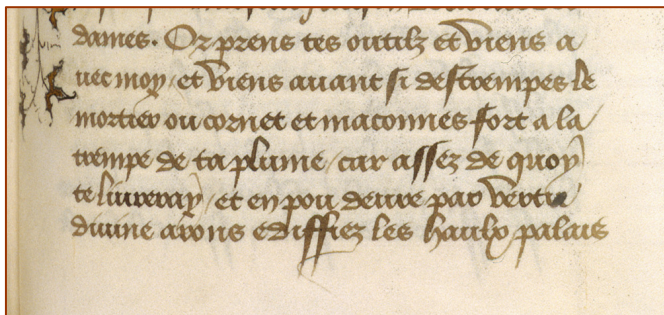 dames. Or prens tes outilz et viens a
uec moy / et viens auant si destrempes le
mortier ou cornet et maconnes fort a la
trempe de ta plume / car assez de quoy
te liureray / et en pou deure par vertu
diuine arons ediffiez les haulx palais